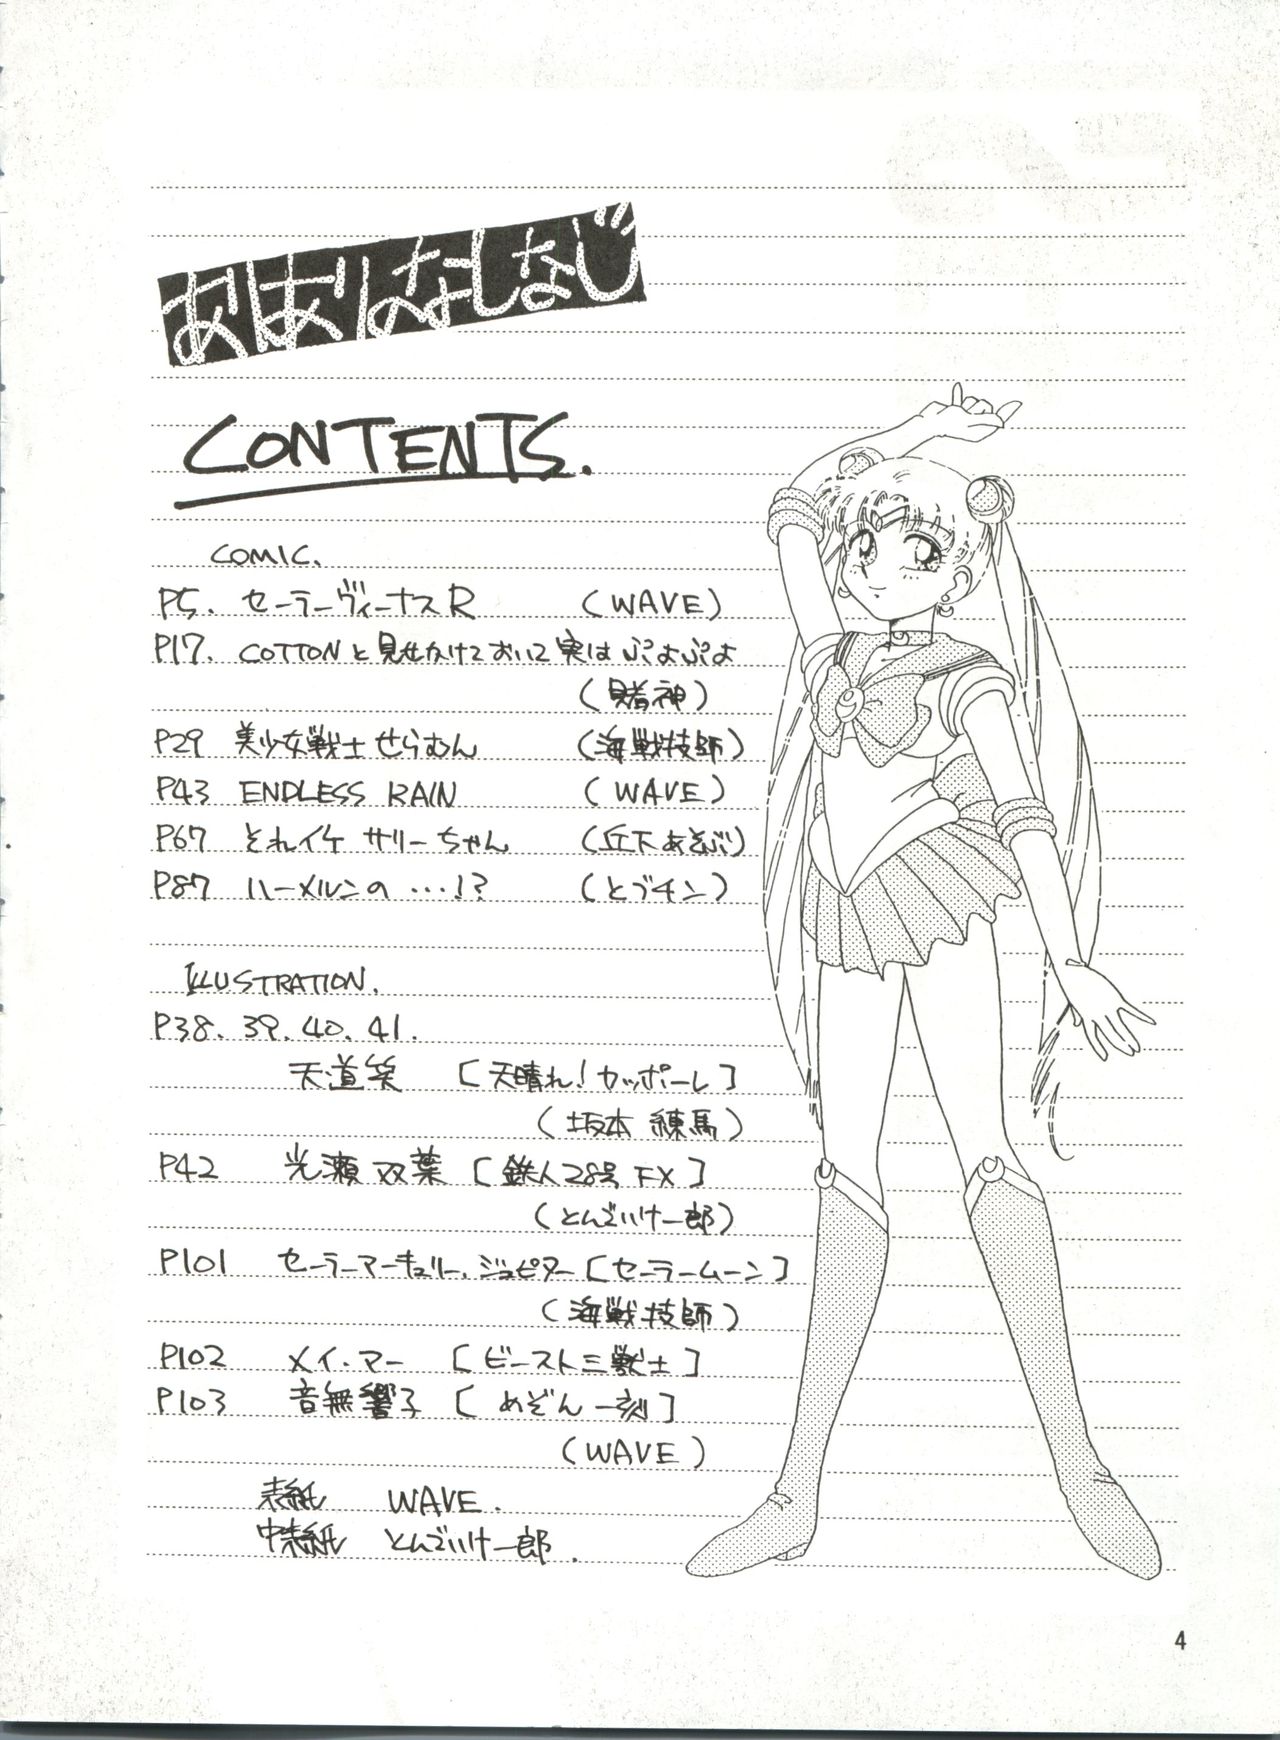 あはりのなしなじ
CONTENTS.
COMIC.
P5. セーラーヴィーナスR (WAVE)
P17. COTTONと見せかけておいて実はぷよぷよ
(賭神)
P29 美少女戦士せらむん (海戦技師)
P43 ENDLESS RAIN (WAVE)
P67 それイケ サリーちゃん (丘下あそぶ)
P87 ハーメルンの…!? (とブチン)
ILLUSTRATION.
P38.39.40.41.
天道笑 [天晴れ!カッポーレ]
(坂本 練馬)
P42 光瀬双葉 [鉄人28号FX]
(とんでいけ一郎)
P101 セーラーマーキュリー、ジュピター[セーラームーン]
(海戦技師)
P102 メイ・マー [ビースト三獣士]
P103 音無響子 [めぞん一刻]
(WAVE)
表紙 WAVE.
中表紙 とんでいけ一郎.
4